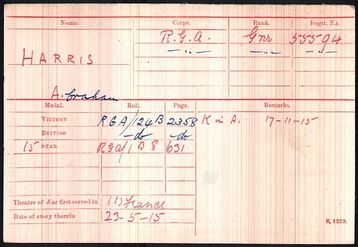 Name. Corps. Rank. Regtl. No.
HARRIS R.G.A. Gnr 55594
" " "
A.braham
Medal. Roll. Page. Remarks.
VICTORY RGA/124B 2358 K in A. 17-11-15
BRITISH -do- -do-
15 STAR RGA/1 B 8 631
Theatre of War first served in (1) France
Date of entry therein 23-5-15
K. 1380.